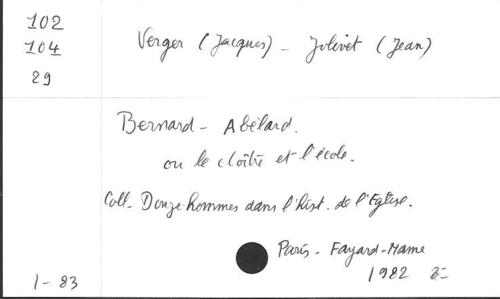 102
104
29
Verger (Jacques) - Jolivet (Jean)
Bernard - Abélard.
ou le cloître et l'école.
Coll. Douze hommes dans l'hist. de l'Eglise.
Paris - Fayard-Mame
1982
1-83